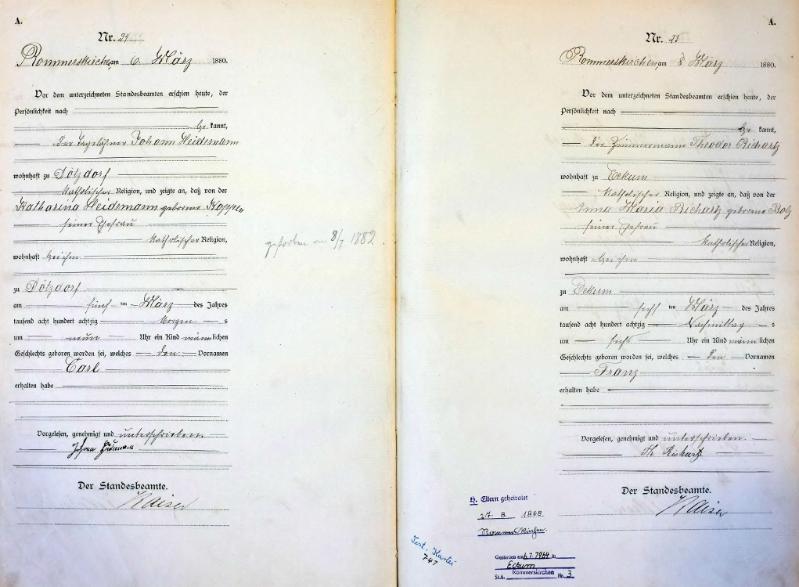 A.
Nr. 27
Rommerskirchen am 6. März 1880.
Vor dem unterzeichneten Standesbeamten erschien heute, der
Persönlichkeit nach
be kannt,
der Tagelöhner Johann Heidemann
wohnhaft zu Sötzdorf
katholischer Religion, und zeigte an, daß von der
Katharina Heidemann geborene
seiner Ehefrau
katholischer Religion,
wohnhaft bei ihm
zu Sötzdorf
am fünf ten März des Jahres
tausend acht hundert achtzig Morgen s
um neun Uhr ein Kind männ lichen
Geschlechts geboren worden sei, welches den Vornamen
Carl
erhalten habe
Vorgelesen, genehmigt und unterschrieben
Der Standesbeamte.
Kaiser
gestorben am 8/7 1882.
A.
Nr. 28
Rommerskirchen am 8 März 1880.
Vor dem unterzeichneten Standesbeamten erschien heute, der
Persönlichkeit nach
be kannt,
der Zimmermann Theodor Richartz
wohnhaft zu Eckum
katholischer Religion, und zeigte an, daß von der
Anna Maria Richartz geborene
seiner Ehefrau
katholischer Religion,
wohnhaft bei ihm
zu Eckum
am sechs ten März des Jahres
tausend acht hundert achtzig Nachmittag s
um sechs Uhr ein Kind männ lichen
Geschlechts geboren worden sei, welches den Vornamen
Franz
erhalten habe
Vorgelesen, genehmigt und unterschrieben
Th Richartz
Der Standesbeamte.
Kaiser
Eltern geheiratet
27. 8 1868
Rommerskirchen
Gestorben am 6.7.1964 in
Eckum
St.A. Rommerskirchen Nr. 3
747